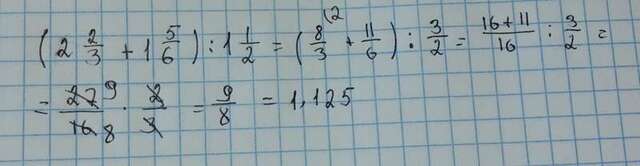 (2 2/3 + 1 5/6) : 1 1/2 = (8/3 (2 + 11/6) : 3/2 = 16+11/16 : 3/2 =
= 27 9/16 8 · 2/3 = 9/8 = 1,125